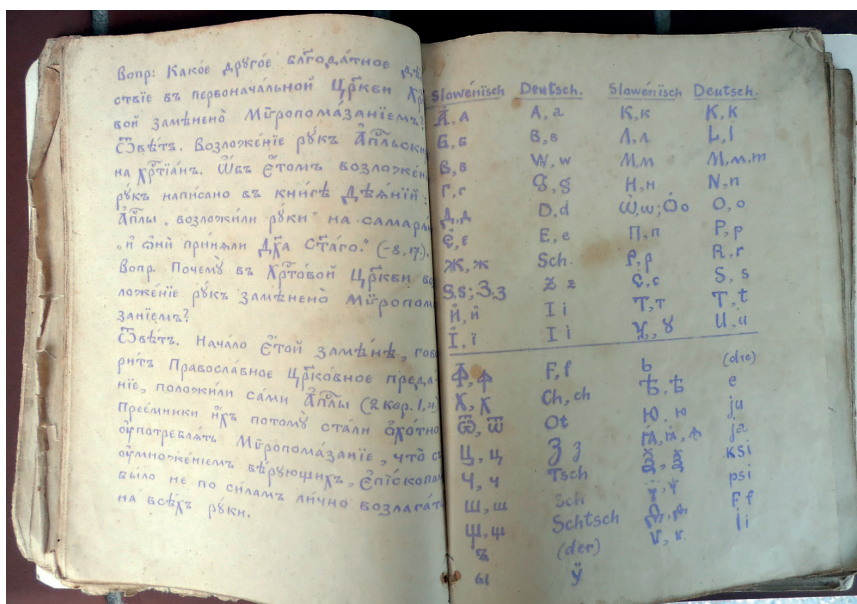 Вопр: Какóе дрꙋгóе благодáтное дѣ-
ствїе въ первоначáльной Цр҃кви Хр҃
вой замѣненó Мѷропомáзанїемъ?
Ѿвѣтъ. Возложéнїе рꙋ́къ Ап҃льски
на Хр҃тїáнъ. Ѡбъ є҆́томъ возложéн
рꙋ́къ напи́сано въ кни́гѣ Дѣѧ́нїй:
Ап҃лы „возложи́ли рꙋ́ки" на самарѧ́
„и҆ ѡ҆ни́ при́нѧли Дх҃а Ст҃áго." (-8, 17.).
Вопр. Почемꙋ̀ въ Хр҃тóвой Цр҃кви во
ложéнїе рꙋ́къ замѣненó Мѷропом
занїемъ?
Ѿвѣтъ. Начáло є҆́той замѣ́нѣ, гов
ри́тъ Правослáвное Цр҃кóвное предá-
нїе, положи́ли сáми Ап҃лы (2 Кор. 1,
Преéмники и҆́хъ потомꙋ̀ стáли ѻ҆хóтно
ᲂу҆потреблѧ́ть Мѷропомáзанїе, что с
ᲂу҆множéнїемъ вѣ́рꙋющихъ, Е҆пі́скопа
бы́ло не по си́ламъ ли́чно возлагáт
на всѣ́хъ рꙋ́ки.
Slowénisch Deutsch. Slowénisch Deutsch.
А, а A, a К, к K, k
Б, б B, b Л, л L, l
В, в W, w М, м M, м, m
Г, г G, g Н, н N, n
Д, д D, d Ѡ, ѡ; О о O, o
Є, е E, e П, п P, p
Ж, ж Sch. Р, р R, r
Ѕ, ѕ; З, з Z z С, с S, s
Й, й I i Т, т T, t
І, ї I i Ꙋ, ꙋ U, u
Ф, ф F, f ь (die)
Х, х Ch, ch Ѣ, ѣ e
Ѿ, ѿ Ot Ю, ю ju
Ц, ц Z z Ꙗ, ꙗ, ѧ ja
Ч, ч Tsch Ѯ, ѯ ksi
Ш, ш Sch Ѱ, ѱ psi
Щ, щ Schtsch Ѳ, ѳ F f
ъ (der) Ѵ, ѵ Ii
ы ÿ